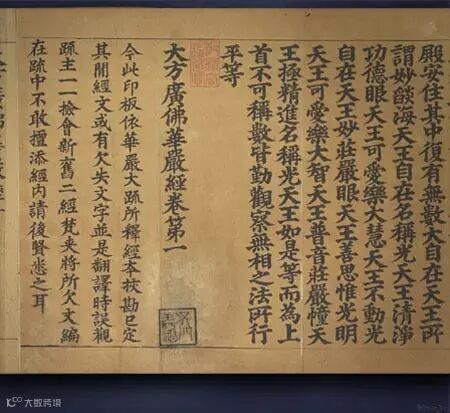 殿安住其中復有無數大自在天王所
謂妙燄海天王自在名稱光天王清淨
功德眼天王可愛樂大慧天王不動光
自在天王妙莊嚴眼天王善思惟光明
天王可愛樂大智天王普音莊嚴幢天
王極精進名稱光天王如是等而為上
首不可稱數皆勤觀察無相之法所行
平等
大方廣佛華嚴經卷第一
今此印板依華嚴大疏所釋經本挍勘已定
其間經文或有欠失文字並是翻譯時誤觀
疏主一一檢會新舊二經梵夾將所欠文編
在疏中不敢擅添經內請後賢悉之耳
大数跨境